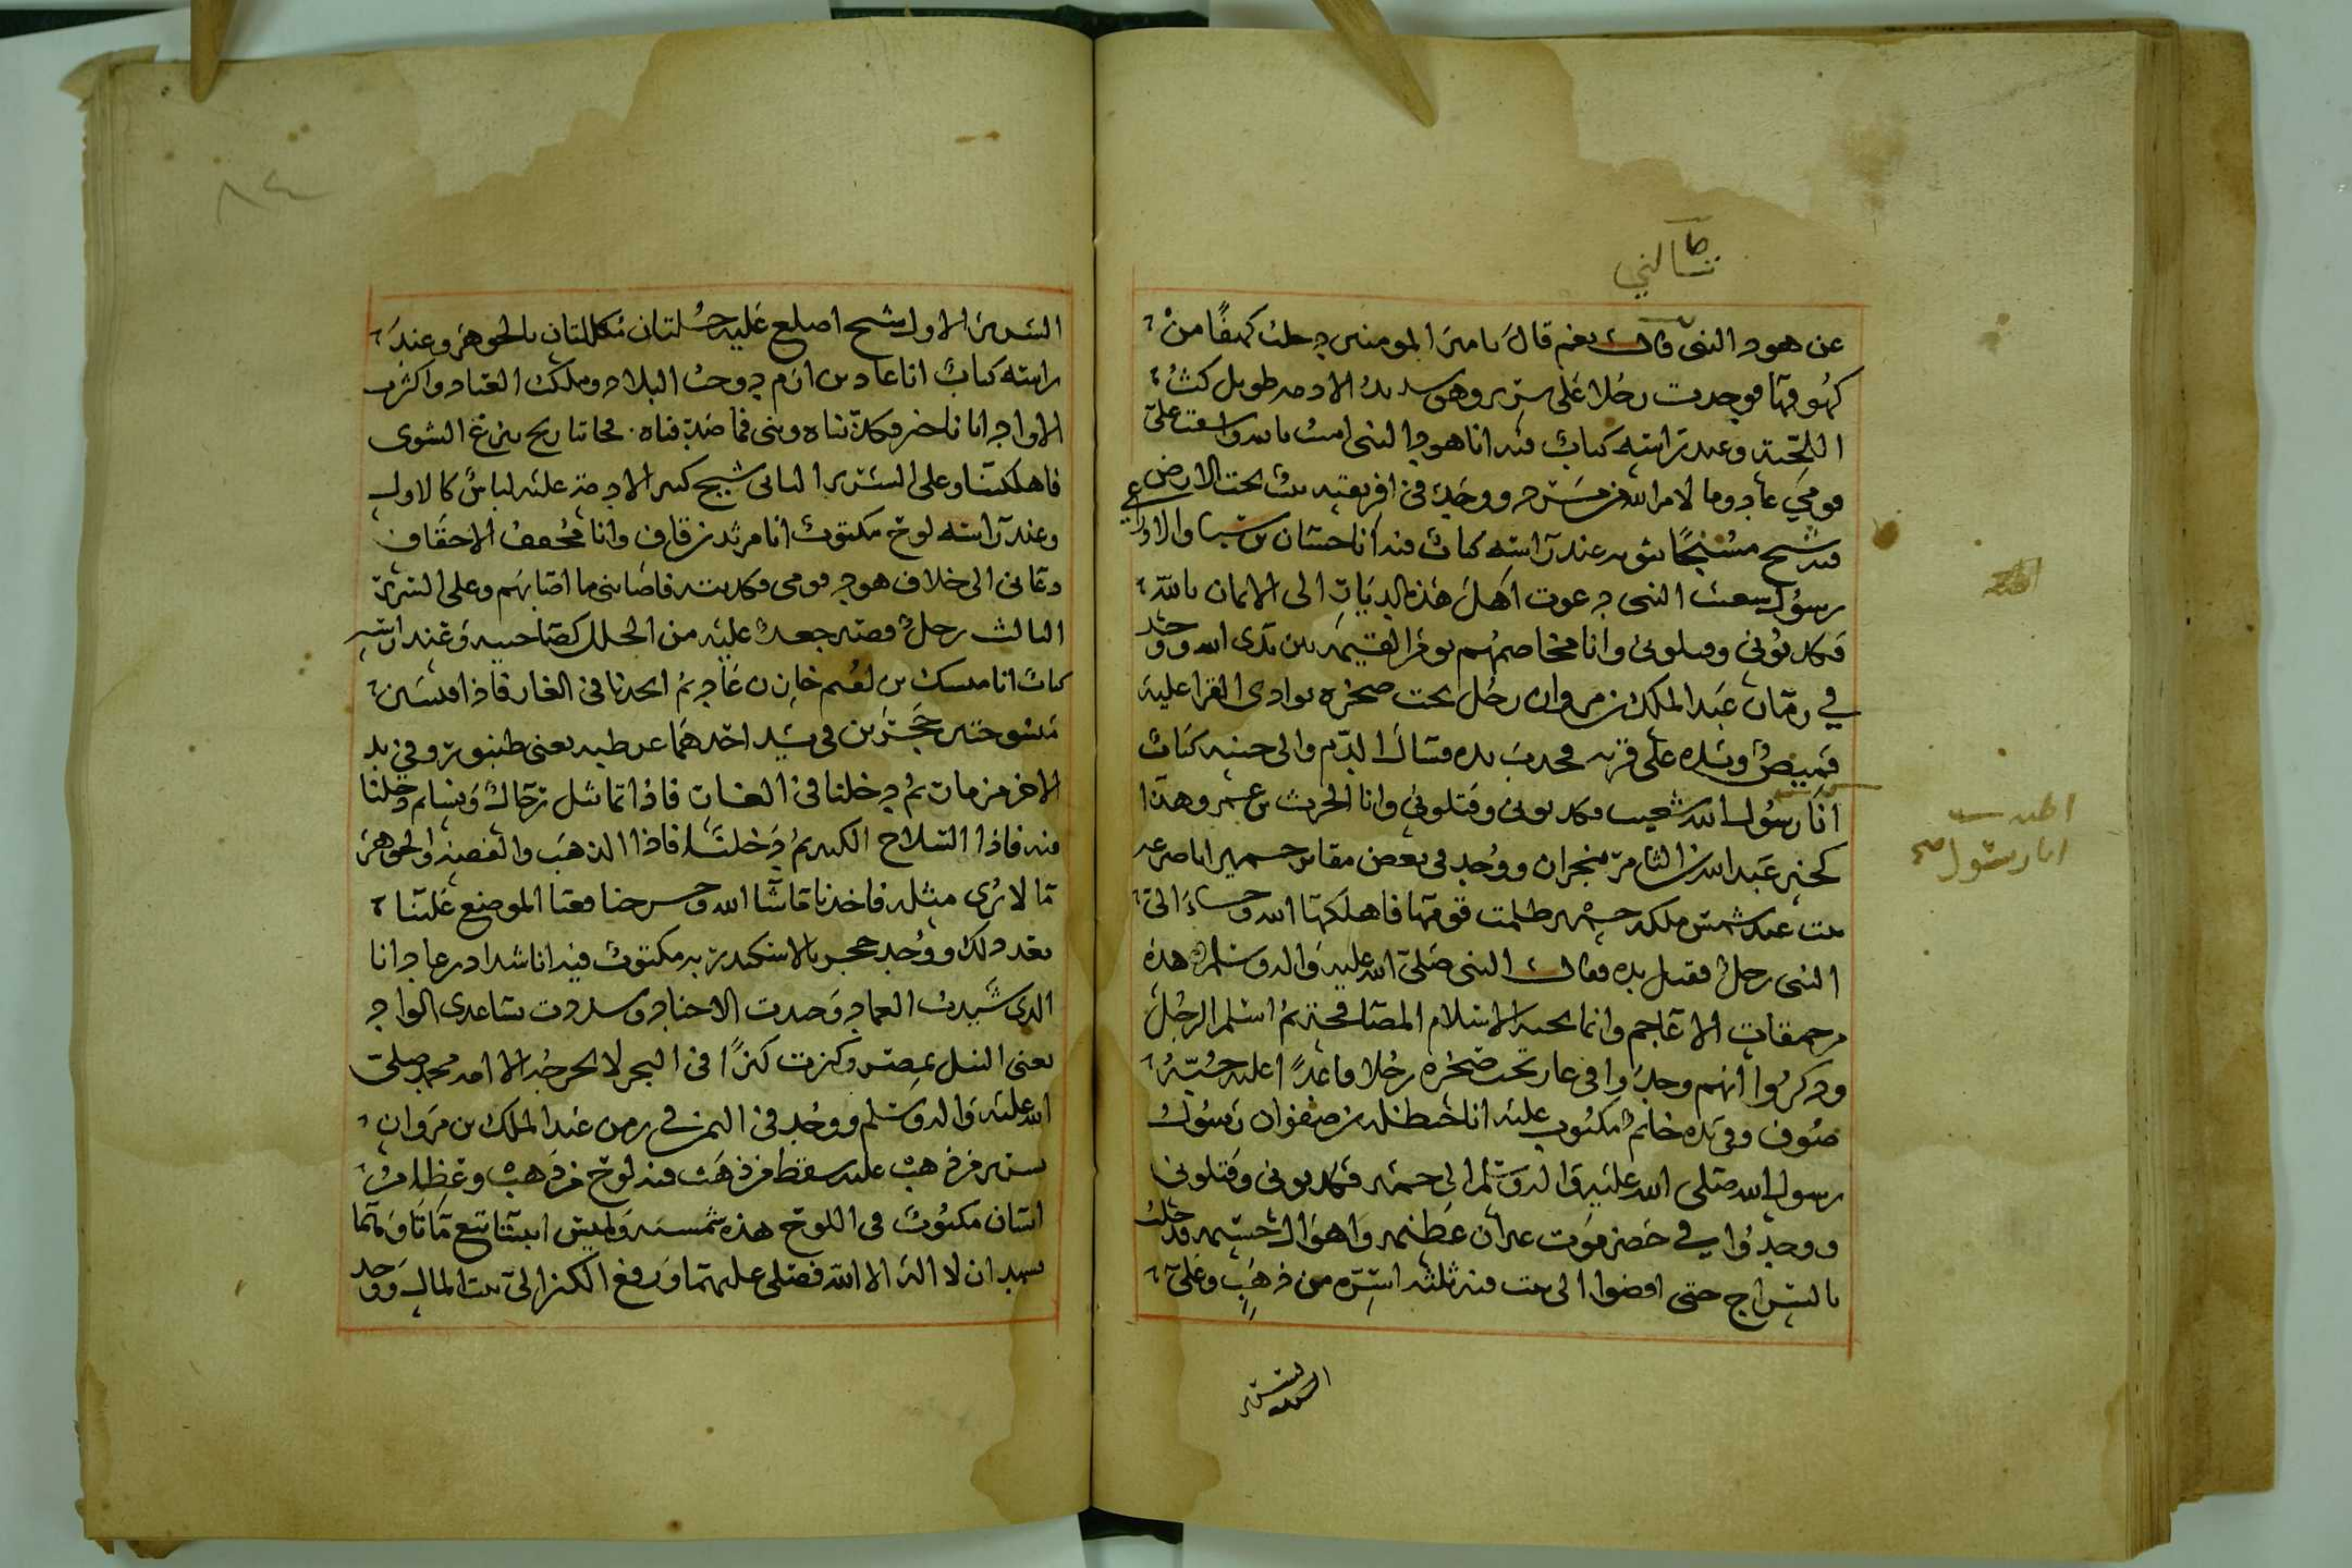 تسالني
عن هود النبى قال نعم قال يا امير المومنين دخلت كهفًا من
كهوفها فوجدت رجلا على سرير وهو شديد الادمه طويل كث
اللحية وعند راسه كتاب فيه انا هود النبى امنت بالله واسفت على
قومي عاد وما لامر الله من مرد ووجد في افريقيه بيت تحت الارض
فيه شيخ مسجًا بثوبه عند راسه كتاب فيه انا حسان بن سنان الاوزاعي
رسول شعيب النبى دعوت اهل هذه الديار الى الايمان بالله
فكذبوني وقتلوني وانا مخاصمهم يوم القيمه بين يدى الله ووجد
في زمان عبد الملك بن مروان رجل تحت صخره بوادى القرا عليه
قميص ويده على قرنه فمدت يده فسال الدم والى جنبه كتاب
انا رسول الله شعيب فكذبونى وقتلوني وانا الحرث بن عمرو وهذا
كخبر عبد الله بن الثامر بنجران ووجد فى بعض مقابر حمير
بنت عبد شمس ملكه حمير ظلمت قومها فاهلكها الله وجاء الى
النبى رجل فقبل يده فقال النبى صلى الله عليه واله وسلم هذه
من حمقات الاعاجم وانما تحيه الاسلام المصافحة ثم اسلم الرجل
وذكروا انهم وجدوا فى غار تحت صخره رجلا قاعدًا عليه جبّة
صوف وفى يده خاتم مكتوب عليه انا حنظله بن صفوان رسول
رسول الله صلى الله عليه واله وسلم الى حمير فكذبونى وقتلونى
ووجدوا في حضرموت غيران عظيمه واهوال جسيمه فدخلت
بالسراج حتى افضوا الى بيت فيه ثلثه اسره من ذهب وعلى
السرير
انا رسول
٨٤
السرير الاول شيخ اصلع عليه حلتان مكللتان بالجوهر وعند
راسه كتاب انا عاد بن ارم دوخت البلاد وملكت العباد واكثرت
الاولاد اتانا خبر فكذبناه ونهى فما صدقناه فجاتنا ريح تنزع الشوى
فاهلكتنا وعلى السرير الثانى شيخ كبير الادمة عليه لباس كالاول
وعند راسه لوح مكتوب انا مرثد بن قارف وانا محقف الاحقاف
دعانى الى خلاف هود قومى فكذبته فاصابنى ما اصابهم وعلى السرير
الثالث رجل قصير جعد عليه من الحلل كصاحبيه وعند راسه
كتاب انا مسك بن لقيم خازن عاد ثم انحدنا فى الغار فاذا
فى يد احدهما عرطبه يعنى طنبور وفي يد
الاخر مزمار ثم دخلنا فى الغار فاذا تماثيل رجال ونساء ودخلنا
فيه فاذا السلاح الكثير ثم دخلنا فاذا الذهب والفضه والجوهر
ما لا يرى مثله فاخذنا ما شا الله وخرجنا فعفا الموضع علينا
بعد ذلك ووجد حجر بالاسكندريه مكتوب فيه انا شداد بن عاد انا
الذى شيدت العماد وجندت الاجناد وسددت بساعدى الواد
يعنى النيل بمصر وكنزت كنزًا فى البحر لا يخرجه الا امه محمد صلى
الله عليه واله وسلم ووجد فى اليمن في زمن عبد الملك بن مروان
سرير من ذهب عليه سفط من ذهب فيه لوح من ذهب وعظام
انسان مكتوب فى اللوح هذه شمسه ولميس ابنتا تبع ماتا وهما
تشهدان لا اله الا الله فصلى عليهما ورفع الكنز الى بيت المال ووجد